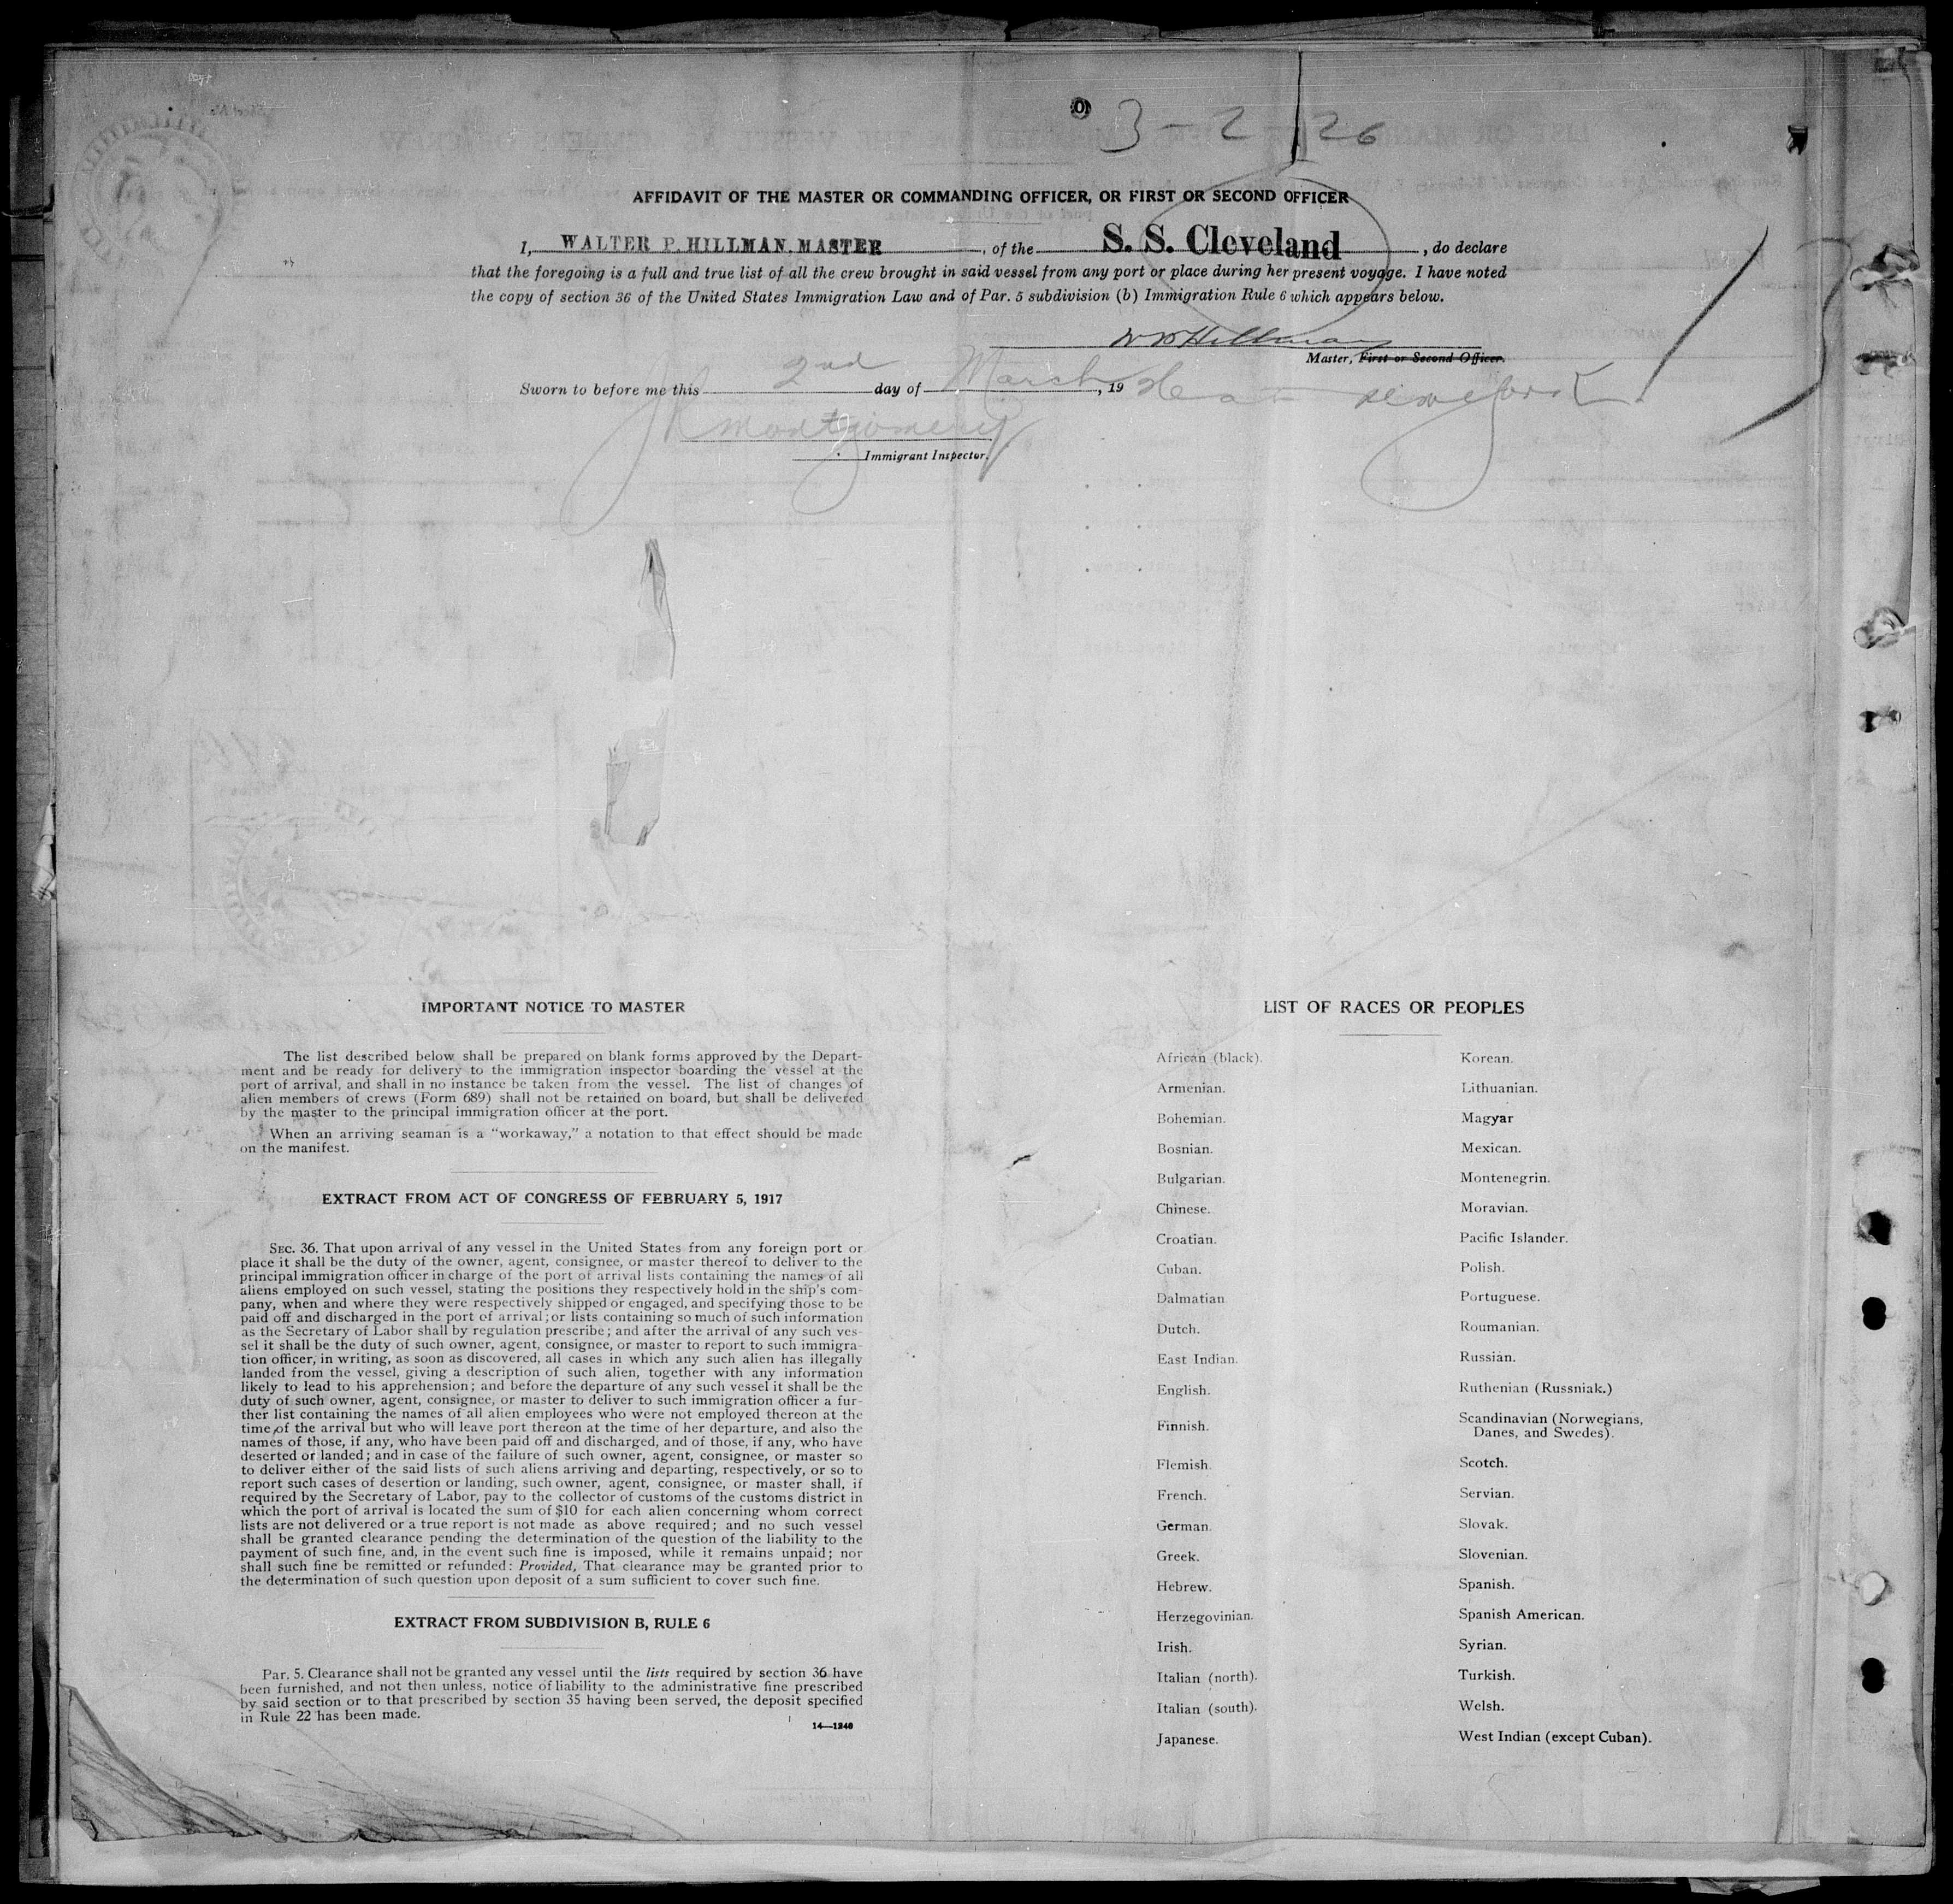 3-2-26
AFFIDAVIT OF THE MASTER OR COMMANDING OFFICER, OR FIRST OR SECOND OFFICER
I, WALTER P. HILLMAN, MASTER, of the S. S. Cleveland, do declare
that the foregoing is a full and true list of all the crew brought in said vessel from any port or place during her present voyage. I have noted
the copy of section 36 of the United States Immigration Law and of Par. 5 subdivision (b) Immigration Rule 6 which appears below.
Hillman
Master, First or Second Officer.
Sworn to before me this 2nd day of March, 19 26 at New York
Montgomery
Immigrant Inspector.
IMPORTANT NOTICE TO MASTER
The list described below shall be prepared on blank forms approved by the Depart-
ment and be ready for delivery to the immigration inspector boarding the vessel at the
port of arrival, and shall in no instance be taken from the vessel. The list of changes of
alien members of crews (Form 689) shall not be retained on board, but shall be delivered
by the master to the principal immigration officer at the port.
When an arriving seaman is a “workaway,” a notation to that effect should be made
on the manifest.
EXTRACT FROM ACT OF CONGRESS OF FEBRUARY 5, 1917
SEC. 36. That upon arrival of any vessel in the United States from any foreign port or
place it shall be the duty of the owner, agent, consignee, or master thereof to deliver to the
principal immigration officer in charge of the port of arrival lists containing the names of all
aliens employed on such vessel, stating the positions they respectively hold in the ship's com-
pany, when and where they were respectively shipped or engaged, and specifying those to be
paid off and discharged in the port of arrival; or lists containing so much of such information
as the Secretary of Labor shall by regulation prescribe; and after the arrival of any such ves-
sel it shall be the duty of such owner, agent, consignee, or master to report to such immigra-
tion officer, in writing, as soon as discovered, all cases in which any such alien has illegally
landed from the vessel, giving a description of such alien, together with any information
likely to lead to his apprehension; and before the departure of any such vessel it shall be the
duty of such owner, agent, consignee, or master to deliver to such immigration officer a fur-
ther list containing the names of all alien employees who were not employed thereon at the
time of the arrival but who will leave port thereon at the time of her departure, and also the
names of those, if any, who have been paid off and discharged, and of those, if any, who have
deserted or landed; and in case of the failure of such owner, agent, consignee, or master so
to deliver either of the said lists of such aliens arriving and departing, respectively, or so to
report such cases of desertion or landing, such owner, agent, consignee, or master shall, if
required by the Secretary of Labor, pay to the collector of customs of the customs district in
which the port of arrival is located the sum of $10 for each alien concerning whom correct
lists are not delivered or a true report is not made as above required; and no such vessel
shall be granted clearance pending the determination of the question of the liability to the
payment of such fine, and, in the event such fine is imposed, while it remains unpaid; nor
shall such fine be remitted or refunded: Provided, That clearance may be granted prior to
the determination of such question upon deposit of a sum sufficient to cover such fine.
EXTRACT FROM SUBDIVISION B, RULE 6
Par. 5. Clearance shall not be granted any vessel until the lists required by section 36 have
been furnished, and not then unless, notice of liability to the administrative fine prescribed
by said section or to that prescribed by section 35 having been served, the deposit specified
in Rule 22 has been made.
14—1240
LIST OF RACES OR PEOPLES
African (black).
Armenian.
Bohemian.
Bosnian.
Bulgarian.
Chinese.
Croatian.
Cuban.
Dalmatian
Dutch.
East Indian.
English.
Finnish.
Flemish.
French.
German.
Greek.
Hebrew.
Herzegovinian.
Irish.
Italian (north).
Italian (south).
Japanese.
Korean.
Lithuanian.
Magyar
Mexican.
Montenegrin.
Moravian.
Pacific Islander.
Polish.
Portuguese.
Roumanian.
Russian.
Ruthenian (Russniak.)
Scandinavian (Norwegians,
Danes, and Swedes).
Scotch.
Servian.
Slovak.
Slovenian.
Spanish.
Spanish American.
Syrian.
Turkish.
Welsh.
West Indian (except Cuban).